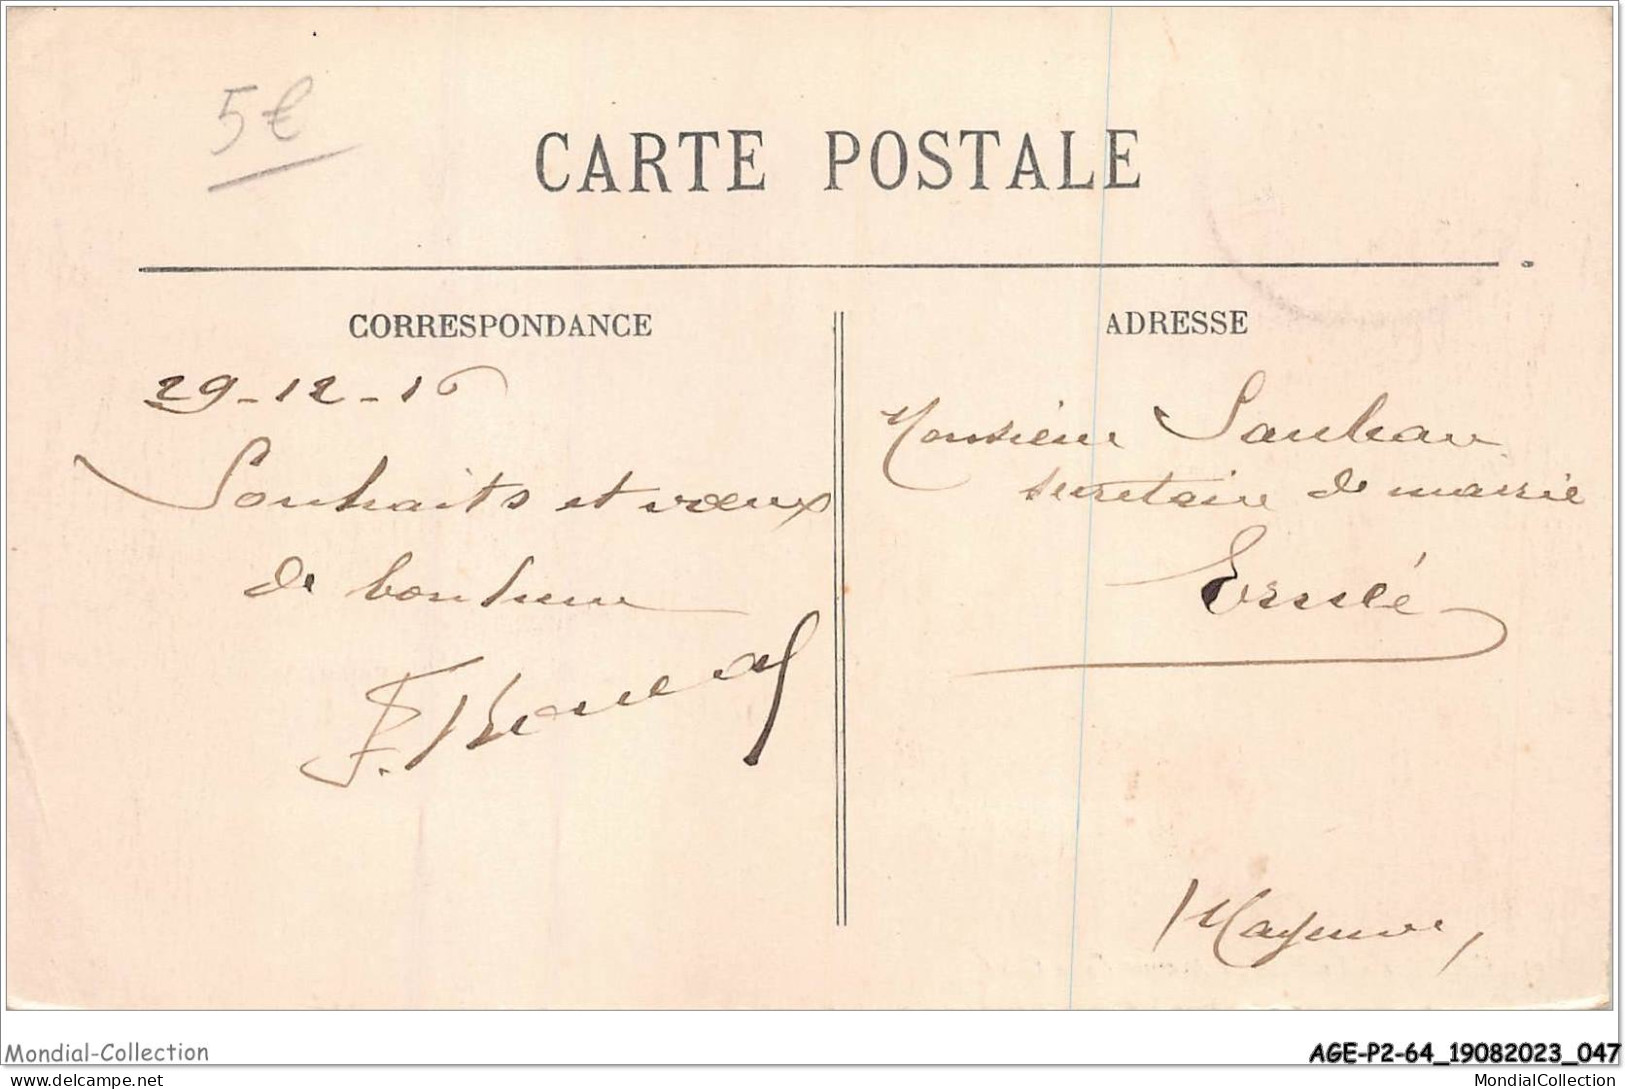 5€
CARTE POSTALE
CORRESPONDANCE
ADRESSE
29-12-16
Souhaits et vœux
de bonheur
F.
Monsieur
secretaire de mairie
Ernée
(Mayenne)
Mondial-Collection
AGE-P2-64_19082023_047
delcampe.net
MondialCollection